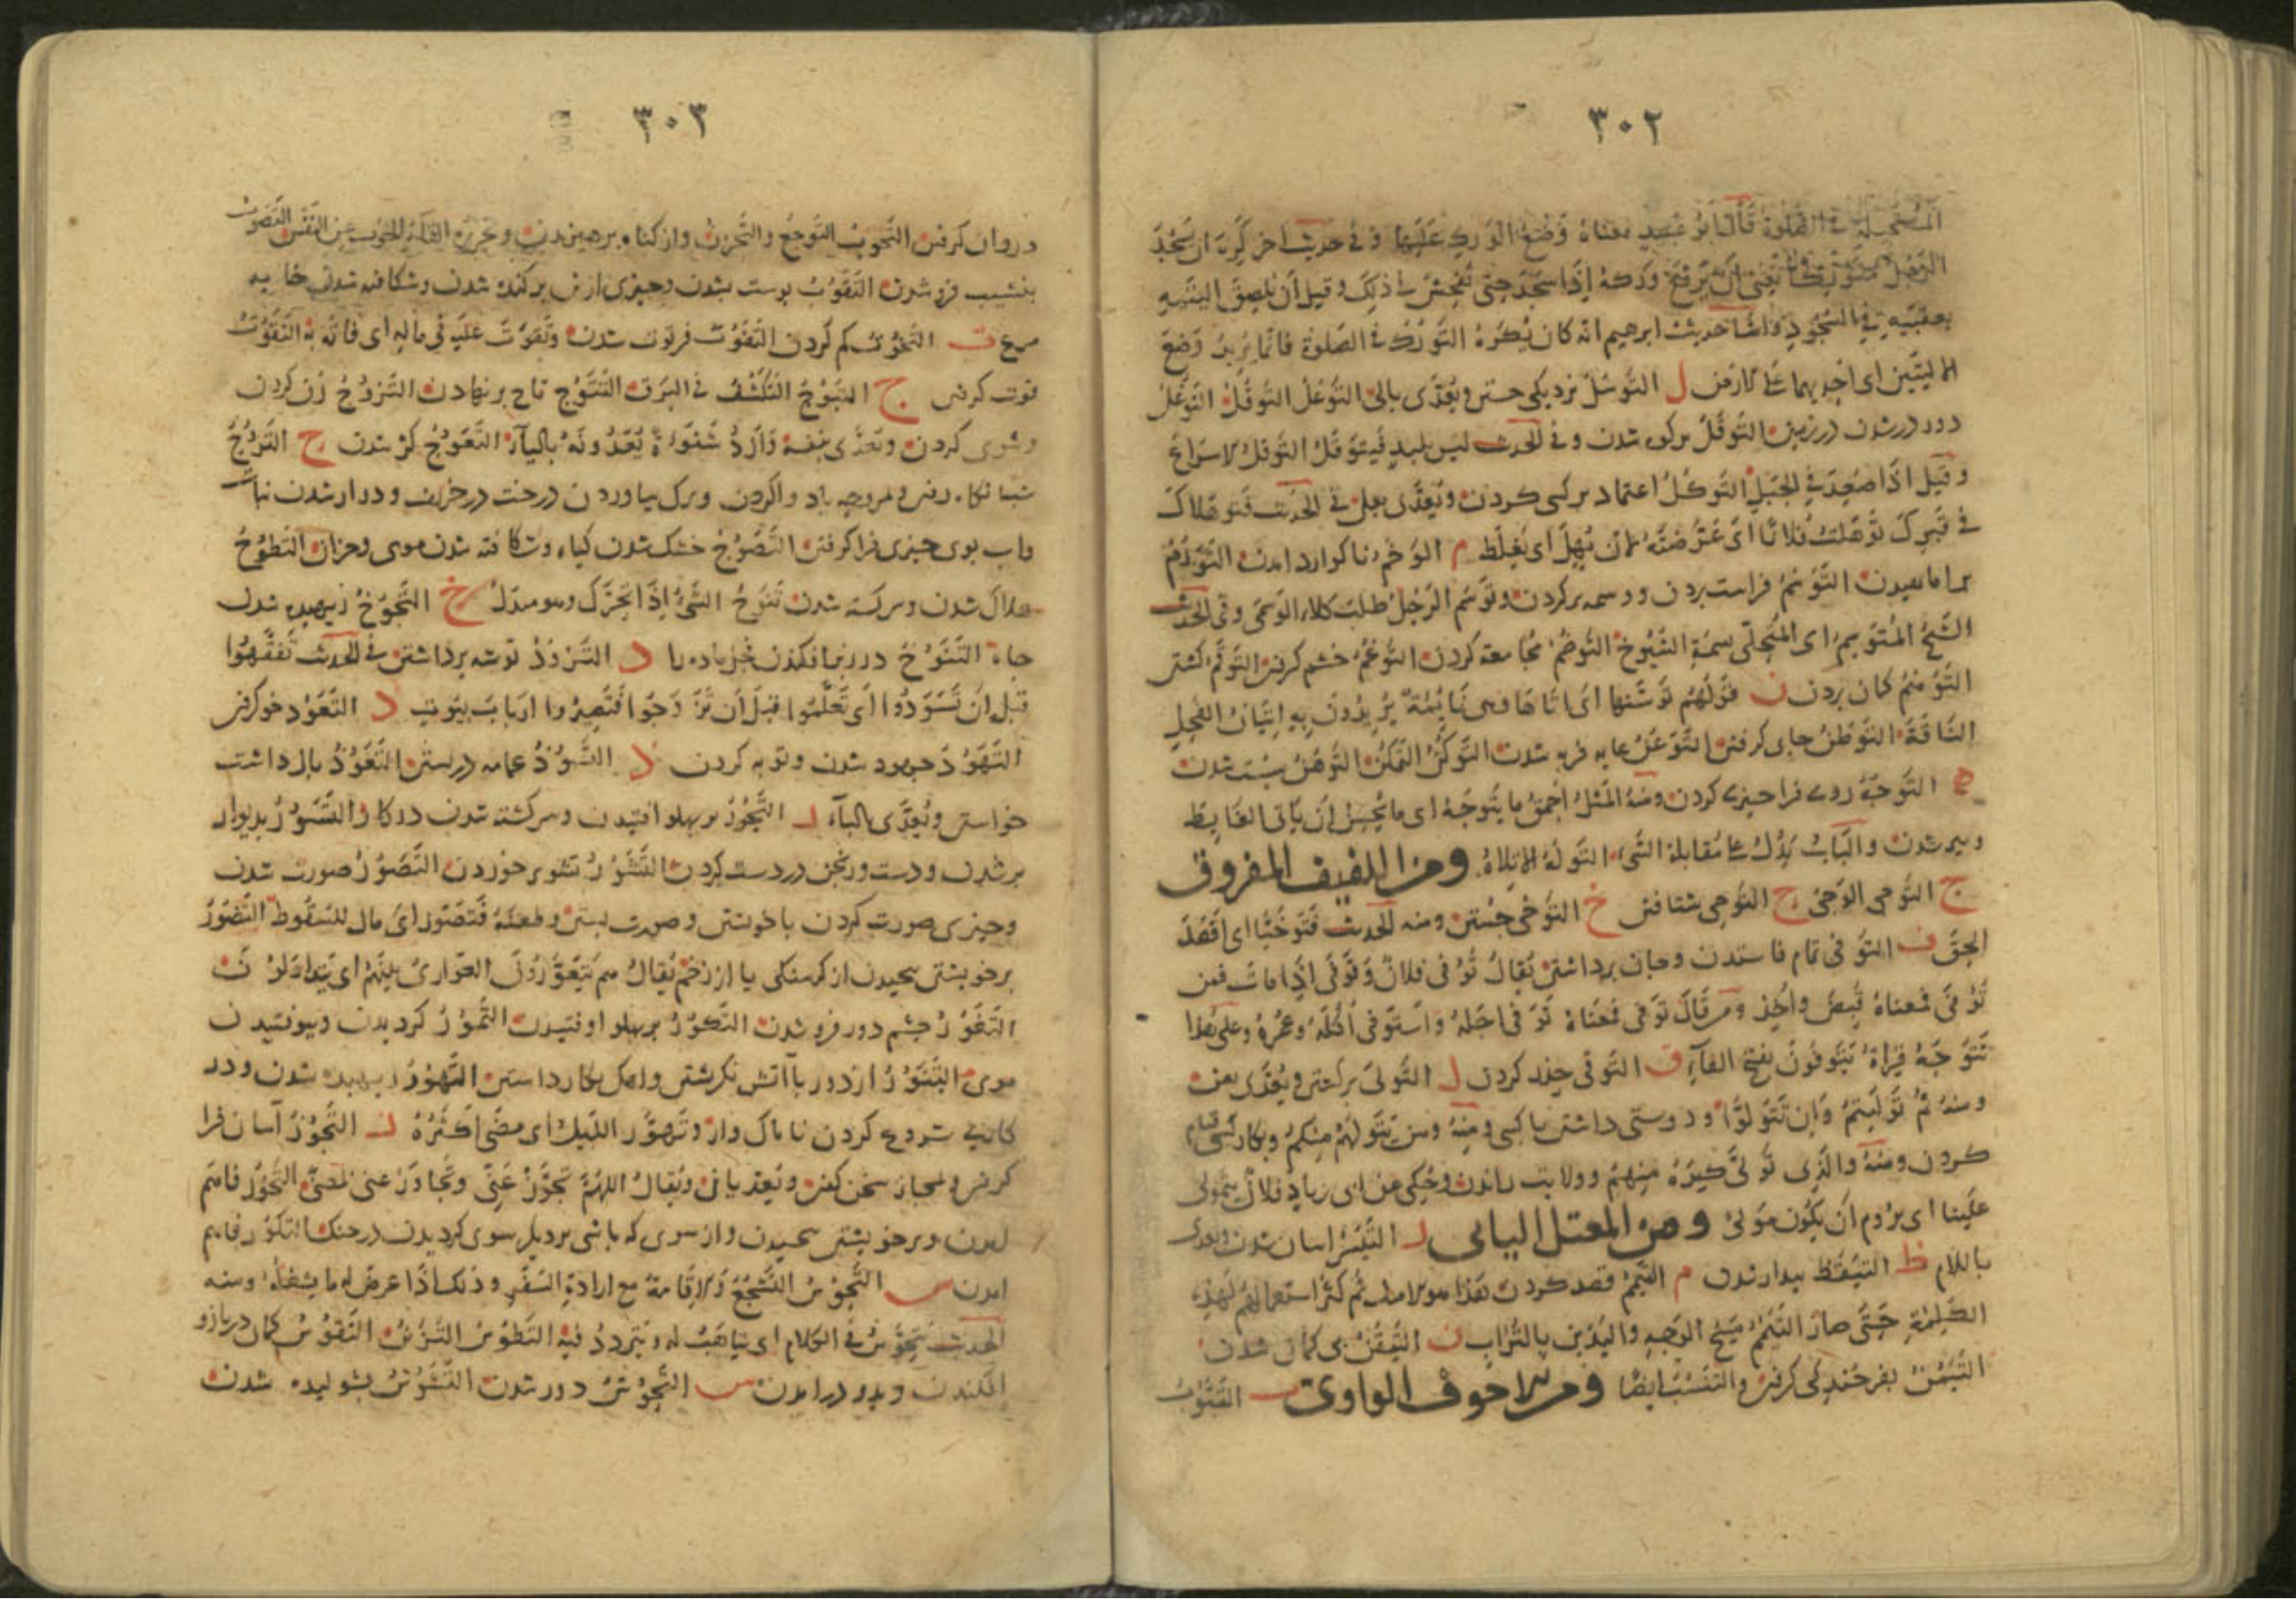 ٣٠٢
المستحيلة في الصلوة قال ابو عبيد معناه وضع الورك عليها وفي حديث اخر كره ان يسجد
الرجل متوركا يعني ان يرفع وركه اذا سجد حتى يفحش في ذلك وقيل ان يلصق اليتيه
بعقبيه في السجود واما حديث ابرهيم انه كان يكره التورك في الصلوة فانما يريد وضع
الاليتين او احديهما على الارض ل التوسل نزديكي جستن ويعدى بالى التوغل التوقل التوغل
دور در شدن در زمين التوقل بر كوه شدن وفي الحديث ليس بلبد فيتوقل التوقل الاسراع
وقيل اذا صعد في الجبل التوكل اعتماد بر كسى كردن ويعدى بعلى في الحديث فتوهلاك
في قبرك توهلت فلانا اى عرضته لان يهل اى يغلط م الوخم ناكوارد امدن التورم
براماهيدن التوسم فراست بردن ووسمه بر كردن وتوسم الرجل طلب كلاء الوسمى وفي الحديث
الشيخ المتوسم اى المتحلى بسمة الشيوخ التوضم مجامعة كردن التوغم خشم كرفتن التوقم كشتن
التوهم كمان بردن ن قولهم توسنها اى اتاها وهى نائمة يريدون به اتيان الفحل
الناقة التوطن جاى كرفتن التوعن عايه فربه شدن التوكن التمكن التوهن سست شدن
ه التوجه روى فرا چيزى كردن ومنه المثل احمق ما يتوجه اى ما يحسن ان ياتى الغايط
وپير شدن والباب يدل على مقابلة الشىء التوله الاتلاه ومن اللفيف المفروق
ج التوجى الوجى ح التوحى شتافتن خ التوخى جستن ومنه الحديث فتوخيا اى اقصدا
الحق ف التوفى تمام فا ستدن وجان برداشتن يقال توفى فلان وتوفى اذا مات فمن
توفى فمعناه قبض واخذ ومن قال توفى فمعناه توفى اجله واستوفى اكله وعمره وعلى هذا
تتوجه قراة يتوفون بفتح الفاء ق التوقى حذر كردن ل التولى بركشتن ويعدى بعن
ومنه ثم توليتم وان تتولوا ودوستى داشتن با كسى ومنه ومن يتولهم منكم وبكار كسى قيام
كردن ومنه والذى تولى كبره منهم وولايت راندن وحكى عن ابى زياد فلان يتمولى
علينا اى يروم ان يكون مولى ومن المعتل اليائى ر التيسر اسان شدن ويعدى
باللام ظ التيقظ بيدار شدن م التيمم قصد كردن هذا هو الاصل ثم كثر استعمالهم لهذه
الكلمة حتى صار التيمم مسح الوجه واليدين بالتراب ن التيقن بى كمان شدن
التيمن بفرخندكى كرفتن والتنسب ايضا ومن الاجوف الواوى ب التثوب
٣٠٣
در وان كرفتن التحوب التوجع والتحزن واز كناه برهيزيدن
بنشيب فرو شدن التقوب پوست بشدن وچيزى از بن بر كنده شدن وشكافته شدن خايه
مرغ ت التخوت كم كردن التفوت فرتوت شدن وتفوت عليه في ماله اى فاته به التقوت
قوت كرفتن ج التبوج التكشف في البرق التتوج تاج بر نهادن التزوج زن كردن
وشوى كردن وتعدى بنفسه وازد شنواة يعدونه بالباء التعوج كژ شدن ح التروح
شبانكاه رفتن وبمروحه باد واكردن وبرك بياوردن درخت در خريف ودراز شدن نبات
واب بوى چيزى فراكرفتن التصوح خشك شدن كياه وشكافته شدن موى وجزان التطوح
هلاك شدن وسركشته شدن تنوح الشىء اذا تحرك وهو متدل خ التجوخ ريهيده شدن
جاه التنوخ در زير افكندن فحل ماده را د التزود توشه برداشتن في الحديث تفقهوا
قبل ان تسودوا اى تعلموا قبل ان تزوجوا فتصيروا ارباب بيوت د التعود خو كرفتن
التهود جهود شدن وتوبه كردن ذ التشوذ عمامه در بستن التعوذ باز داشت
خواستن ويعدى بالباء ر التجوز بر پهلو افتيدن وسركشته شدن در كار التسور بديوار
بر شدن ودست ورنجن در دست كردن التشور تشوير خوردن التصور صورت شدن
وچيزى صورت كردن با خويشتن وصورت بستن وطعنه فتصور اى مال للسقوط التضور
بر خويشتن پيچيدن از كرسنكى يا از زخم يقال هم يتعورون العوارى بينهم اى يتداولون
التغور چشم دور فرو شدن التكور بر پهلو اوفتيدن التمور كرديدن وبيوفتيدن
موى التنور از دور باآتش نكرشتن واهك بكار داشتن التهور ريهيده شدن ودر
كارى شروع كردن نا باك وار وتهور الليل اى مضى اكثره ز التجوز آسان فرا
كرفتن ومجاز سخن كفتن ويعديان ويقال اللهم تجوز عنى وتجاوز عنى بمعنى التحوز فاهم
امدن وبر خويشتن پيچيدن واز سوى كه باشى بر ديكر سوى كرديدن در جنك التكوز فاهم
امدن س التحوس التشجع والاقامة مع ارادة السفر وذلك اذا عرض له ما يشغله ومنه
الحديث يتحوس في الكلام اى يتاهب له ويتردد فيه التطوس التزين التقوس كمان در بازو
افكندن وبدو درامدن ش التحوش دور شدن التشوش بشوليده شدن